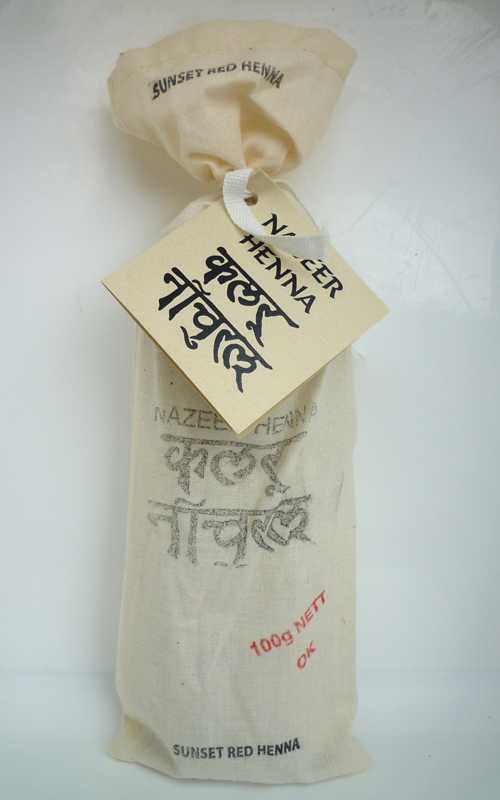 SUNSET RED HENNA
NAZEER
HENNA
कलर
नॉचुरल
NAZEER HENNA
कलर
नॉचुरल
100g NETT
OK
SUNSET RED HENNA